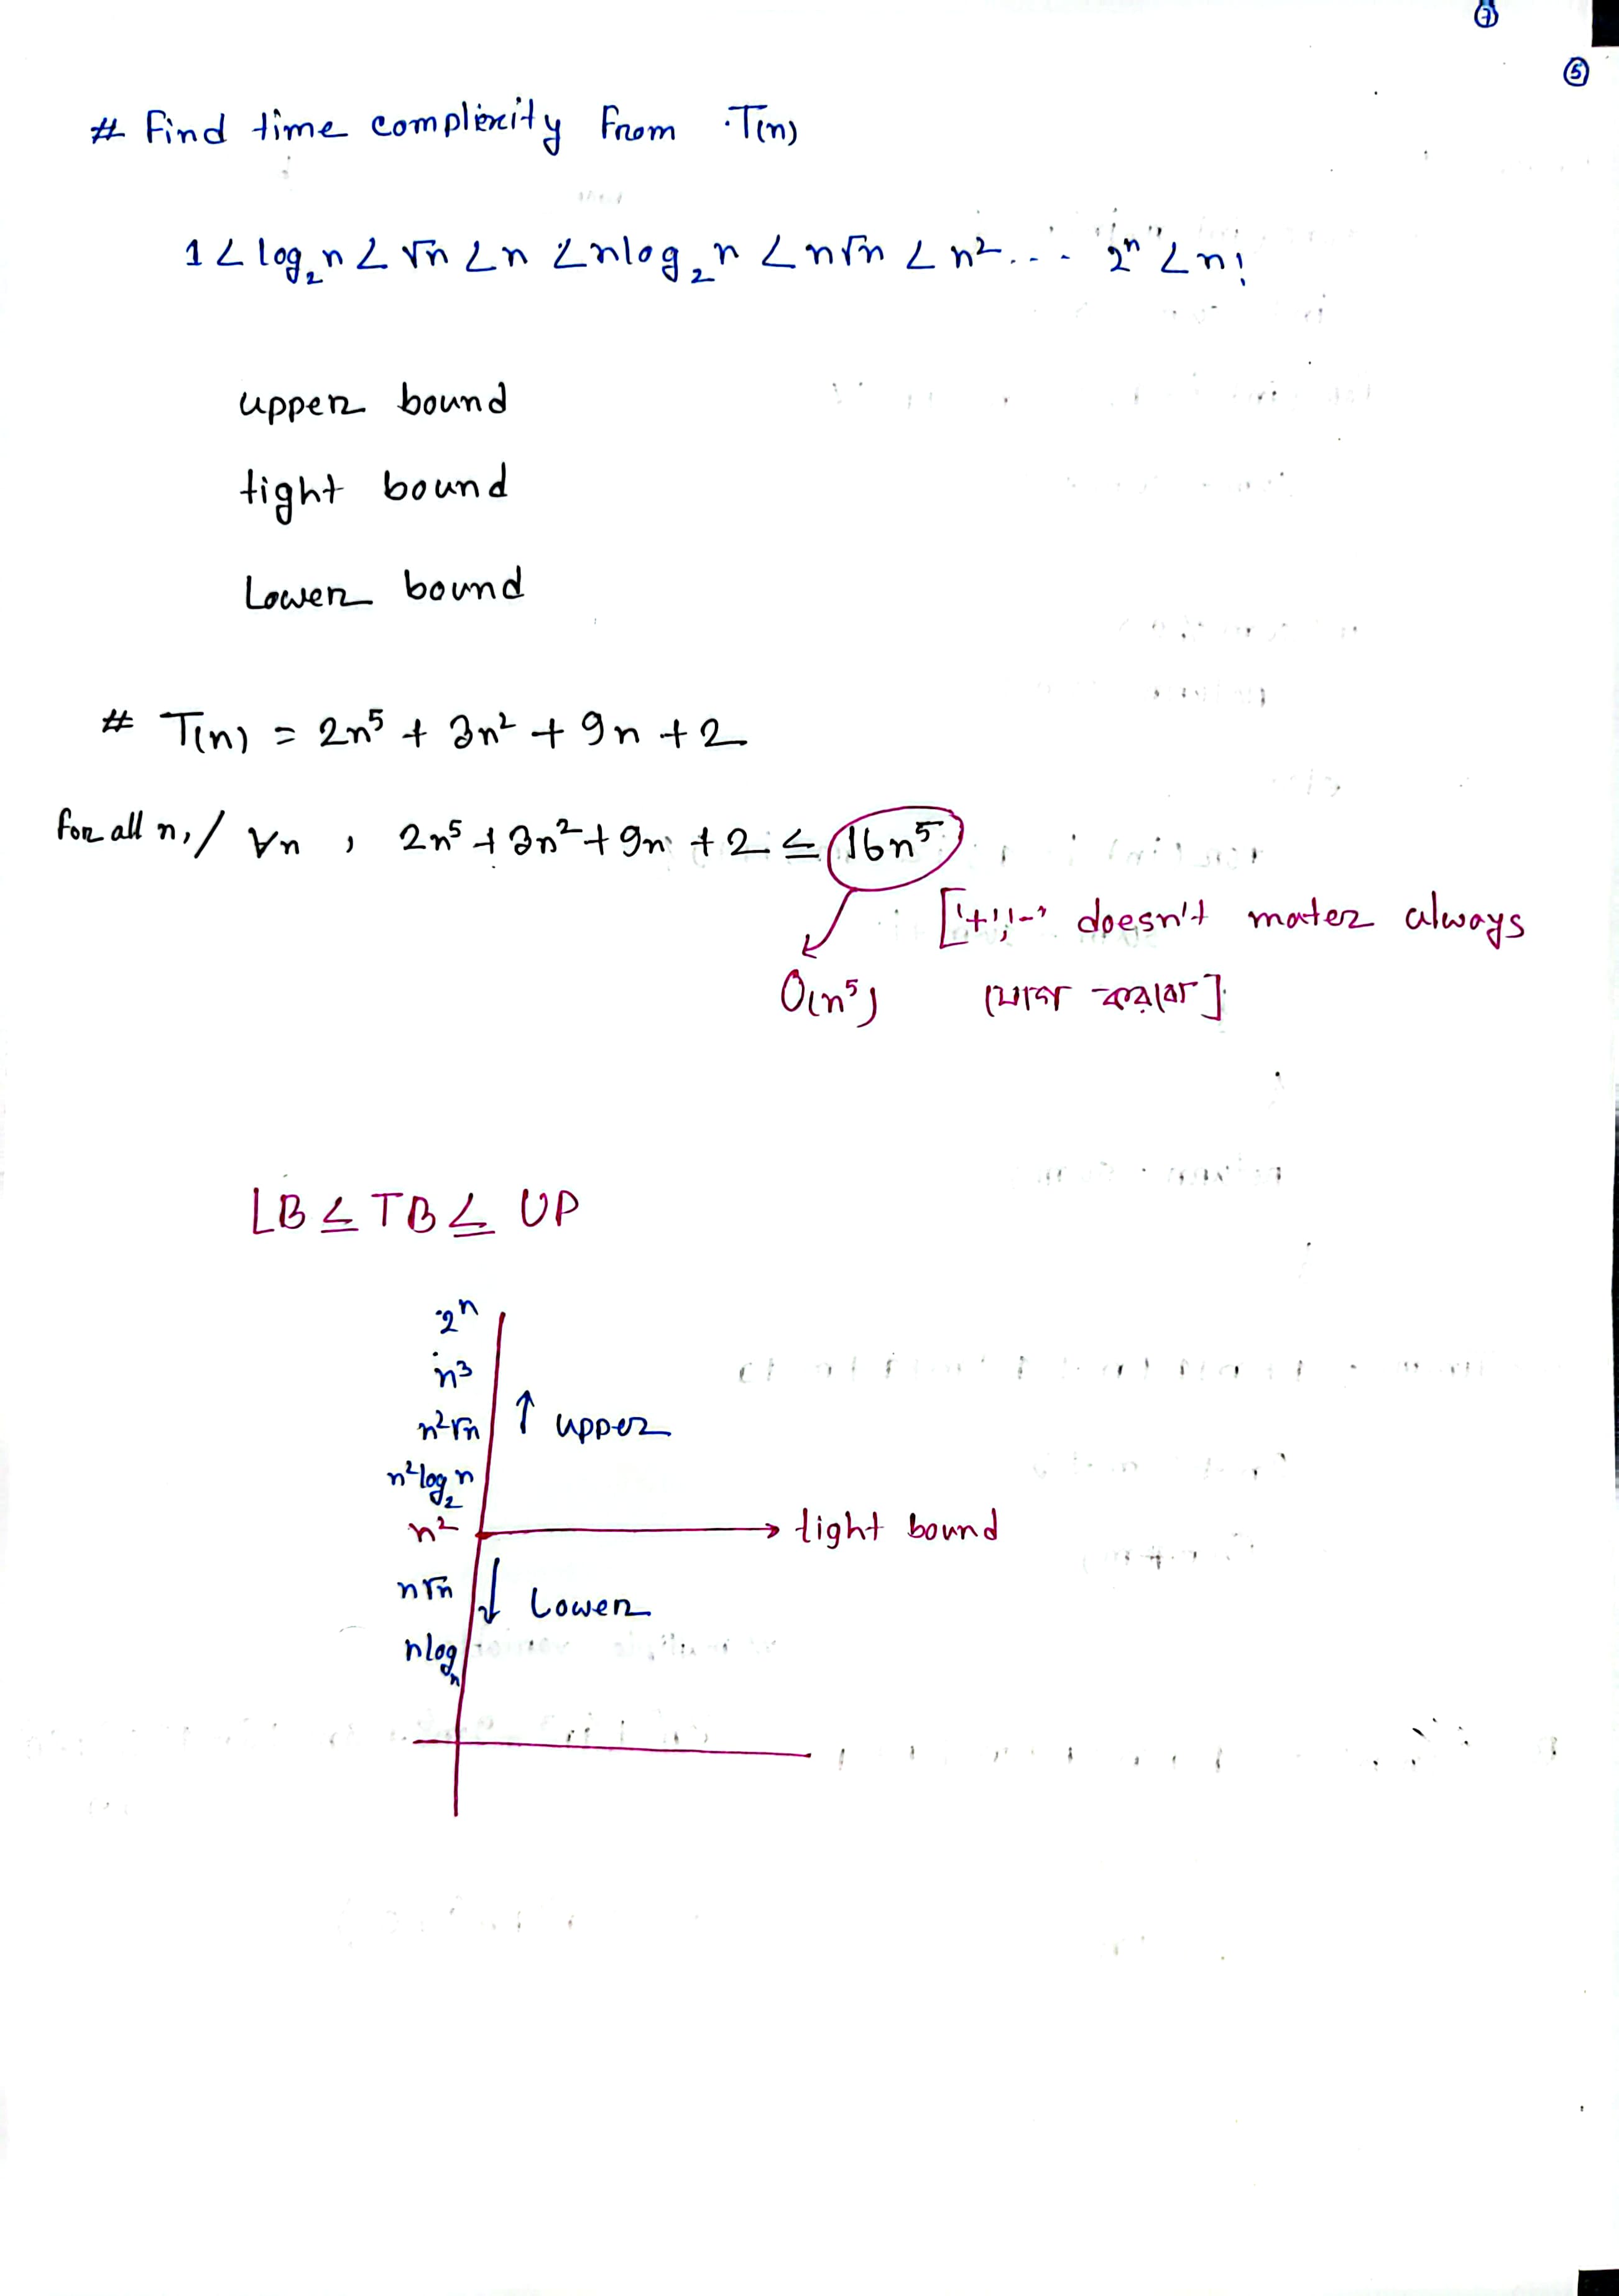 7
5
# Find time complexity from T(n)
1 < log₂n < √n < n < nlog₂n < n√n < n² ... 2ⁿ < n!
upper bound
tight bound
Lower bound
# T(n) = 2n⁵ + 3n² + 9n + 2
for all n, / ∀n , 2n⁵ + 3n² + 9n + 2 ≤ 16n⁵
['+', '-' doesn't mater always
O(n⁵) যোগ করবো]
LB ≤ TB ≤ UP
2ⁿ
n³
n²√n ↑ upper
n²log₂n
n² → tight bound
n√n ↓ Lower
nlogn